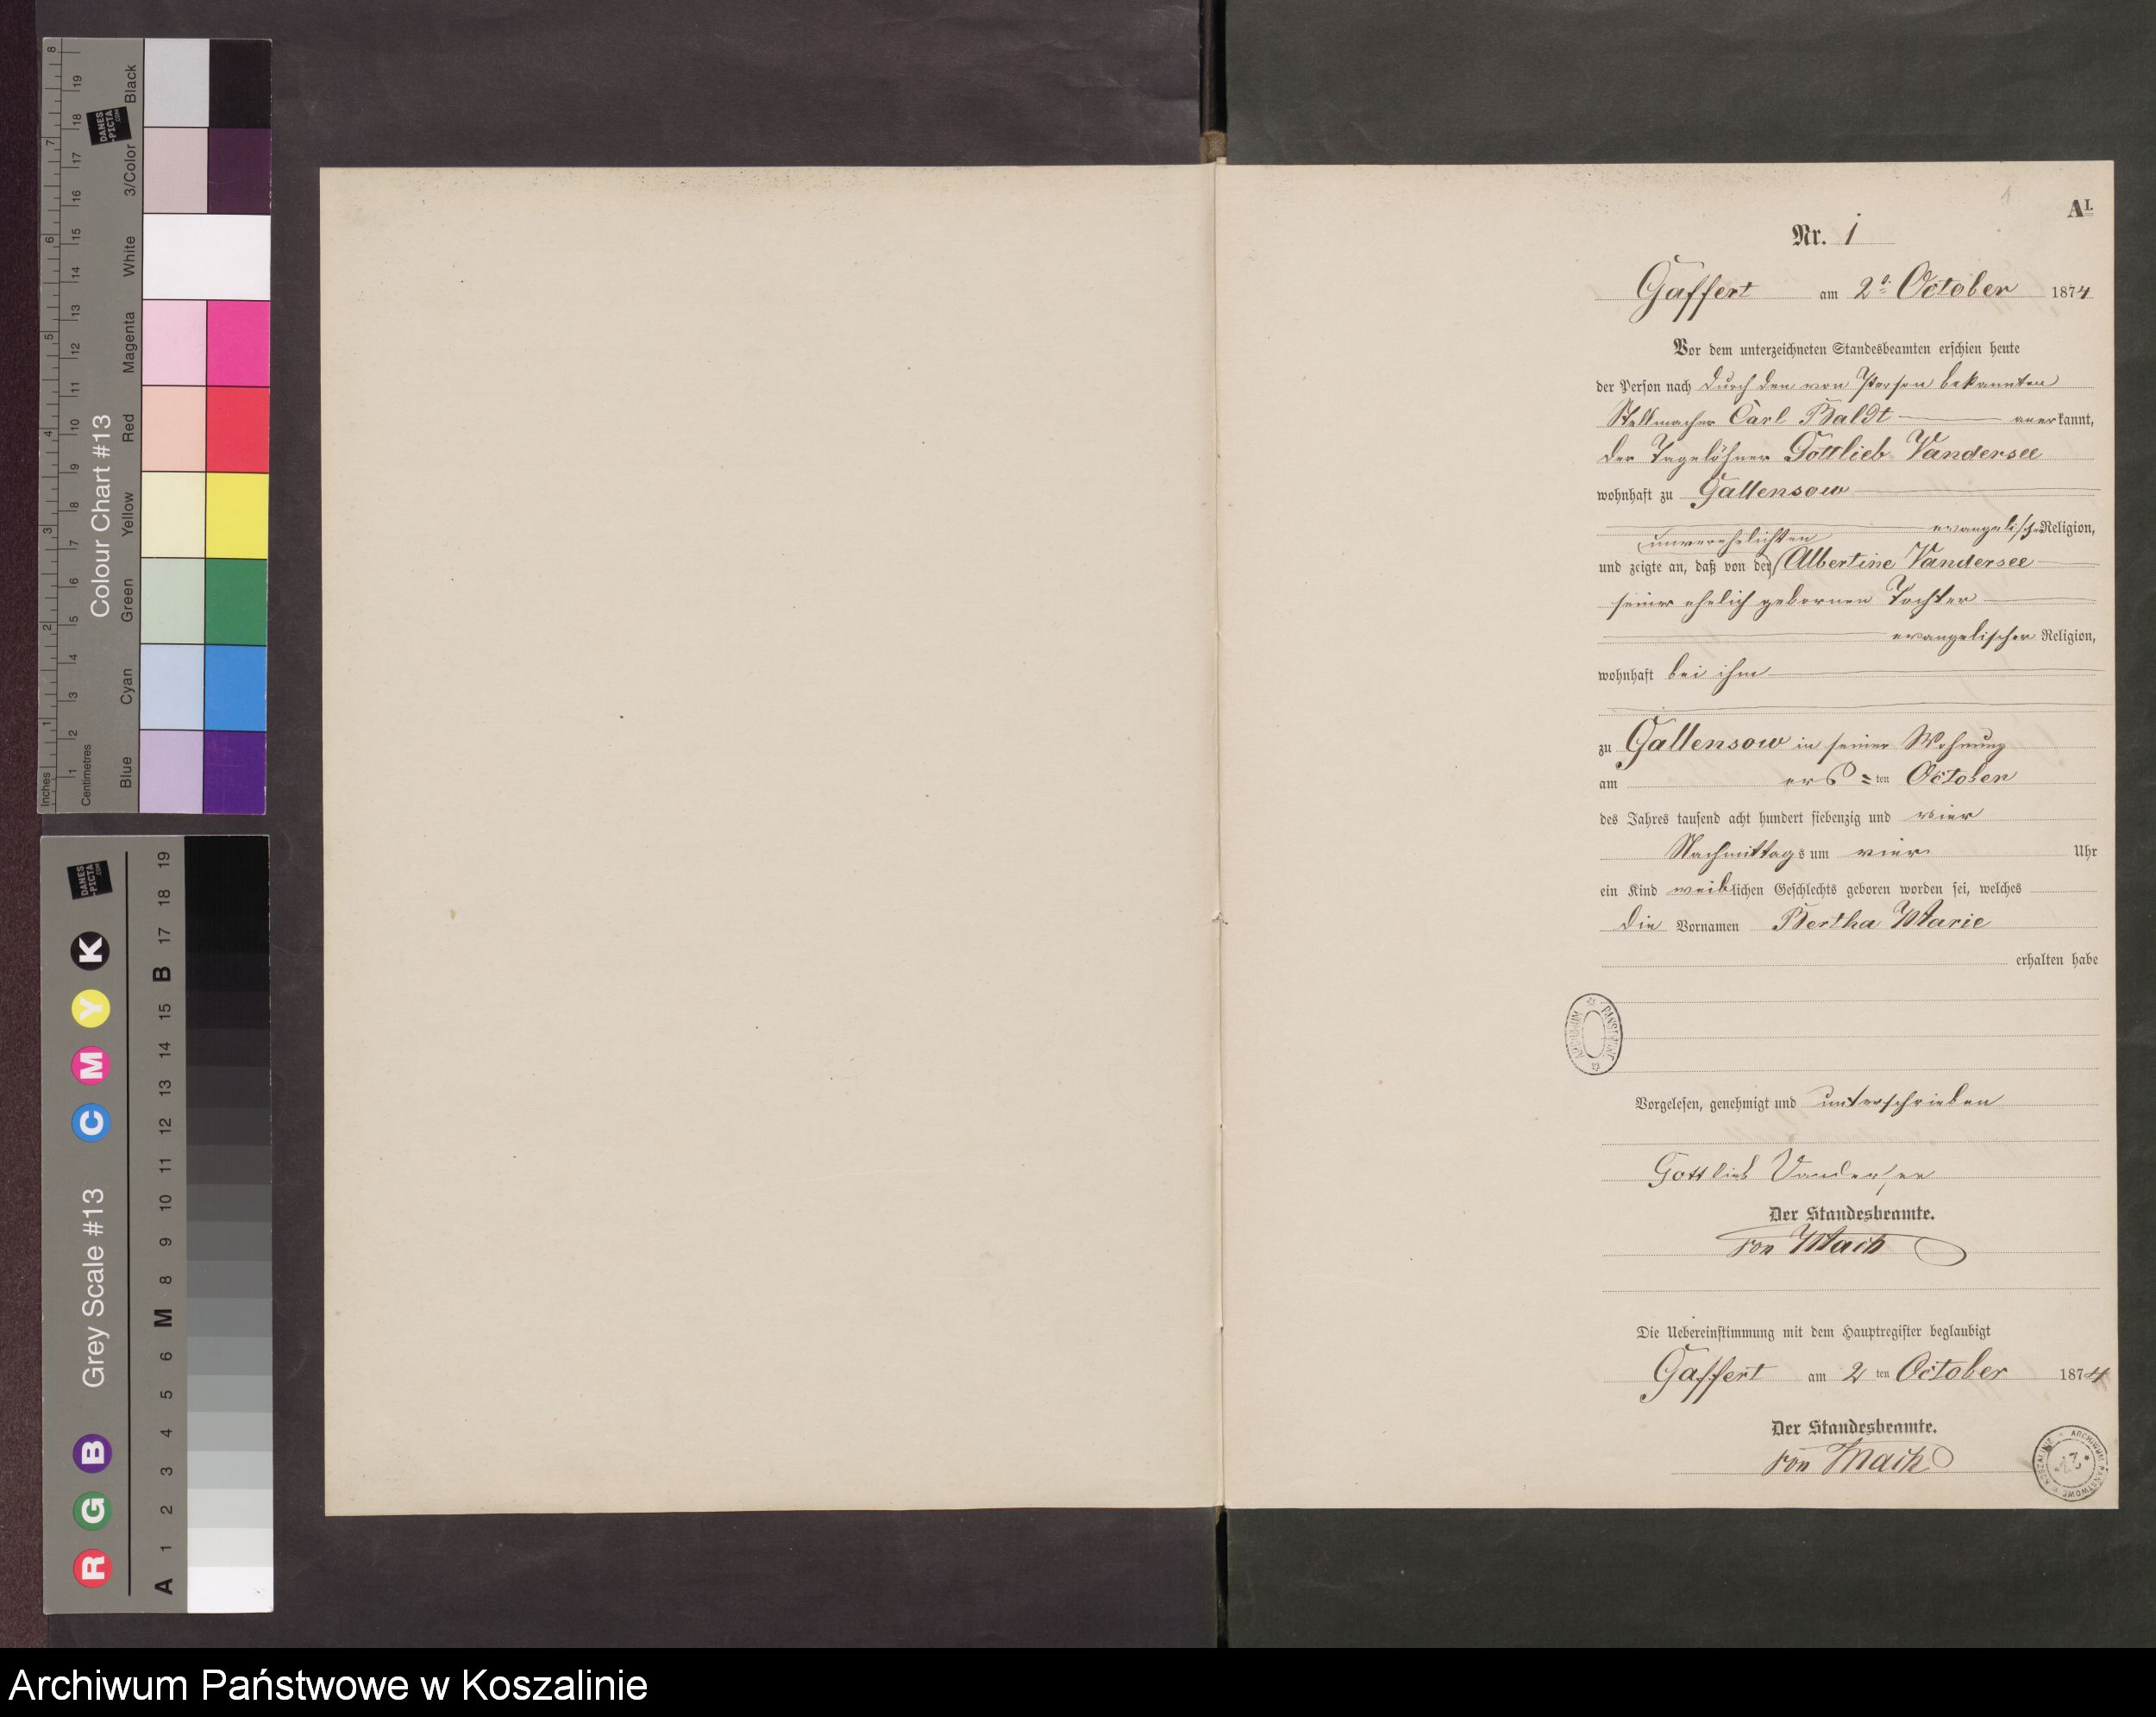 A I.
Nr. 1
Gaffert am 2t. October 1874
Vor dem unterzeichneten Standesbeamten erschien heute
der Person nach durch den von Person bekannten
Stellmacher Carl Baldt anerkannt,
der Tagelöhner Gottlieb Vandersee
wohnhaft zu Gallensow
evangelischer Religion,
unverehelichten
und zeigte an, daß von der Albertine Vandersee
seiner ehelich gebornen Tochter
evangelischer Religion,
wohnhaft bei ihm
zu Gallensow in seiner Wohnung
am ersten October
des Jahres tausend acht hundert siebenzig und vier
Nachmittags um vier Uhr
ein Kind weiblichen Geschlechts geboren worden sei, welches
die Vornamen Bertha Marie
erhalten habe
Vorgelesen, genehmigt und unterschrieben
Gottlieb Vandersee
Der Standesbeamte.
von Mach
Die Uebereinstimmung mit dem Hauptregister beglaubigt
Gaffert am 2 ten October 1874
Der Standesbeamte.
von Mach
Colour Chart #13
Blue Cyan Green Yellow Red Magenta White 3/Color Black
Inches 1 2 3 4 5 6 7 8
Centimetres 1 2 3 4 5 6 7 8 9 10 11 12 13 14 15 16 17 18 19
DANES-PICTA.COM
Grey Scale #13
R G B C M Y K
A 1 2 3 4 5 6 M 8 9 10 11 12 13 14 15 B 17 18 19
DANES-PICTA.COM
Archiwum Państwowe w Koszalinie